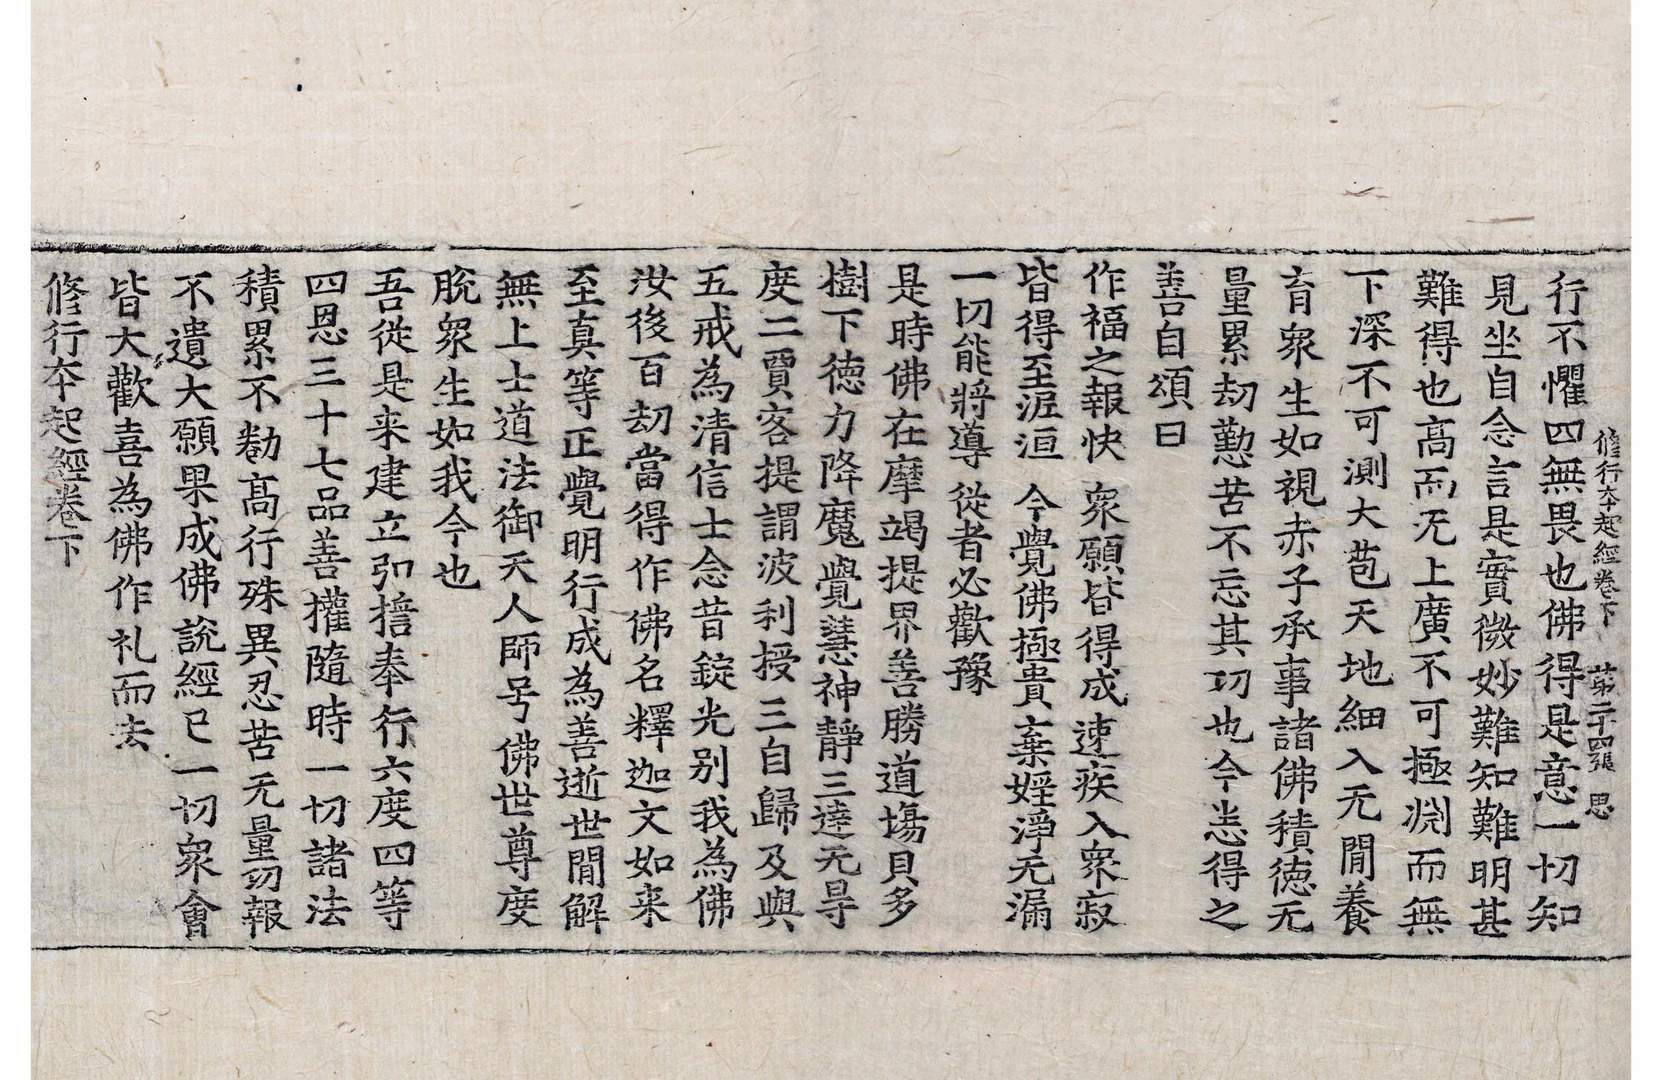 修行夲起經卷下　苐二十四張　思
行不懼四無畏也佛得是意一切知
見坐自念言是實微妙難知難明甚
難得也高而无上廣不可極淵而無
下深不可測大苞天地細入无閒養
育衆生如視赤子承事諸佛積徳无
量累劫懃苦不忘其功也今悉得之
善自頌曰
作福之報快　衆願皆得成　速疾入衆寂
皆得至泥洹　今覺佛極貴　棄婬淨无漏
一切能將導　從者必歡豫
是時佛在摩竭提界善勝道場貝多
樹下徳力降魔覺慧神靜三達无㝵
度二賈客提謂波利授三自歸及與
五戒為清信士念昔錠光别我為佛
汝後百劫當得作佛名釋迦文如来
至真等正覺明行成為善逝世閒解
無上士道法御天人師号佛世尊度
脫衆生如我今也
吾從是来建立弘擔奉行六度四等
四恩三十七品善權隨時一切諸法
積累不勌高行殊異忍苦无量㓛報
不遺大願果成佛說經已一切衆會
皆大歡喜為佛作礼而去
修行夲起經卷下